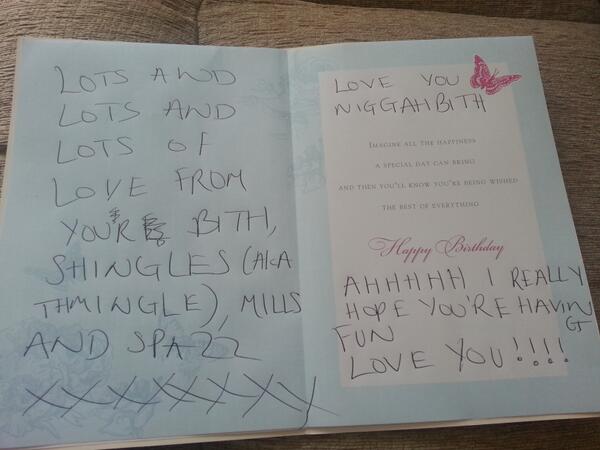 LOTS AND
LOTS AND
LOTS OF
LOVE FROM
YOU'R BITH,
SHINGLES (AKA
THMINGLE), MILLS
AND SPAZZ
XXXXXXXX
LOVE YOU
NIGGAHBITH
IMAGINE ALL THE HAPPINESS
A SPECIAL DAY CAN BRING
AND THEN YOU'LL KNOW YOU'RE BEING WISHED
THE BEST OF EVERYTHING
Happy Birthday
AHHHHH I REALLY
HOPE YOU'RE HAVING
FUN
LOVE YOU!!!!